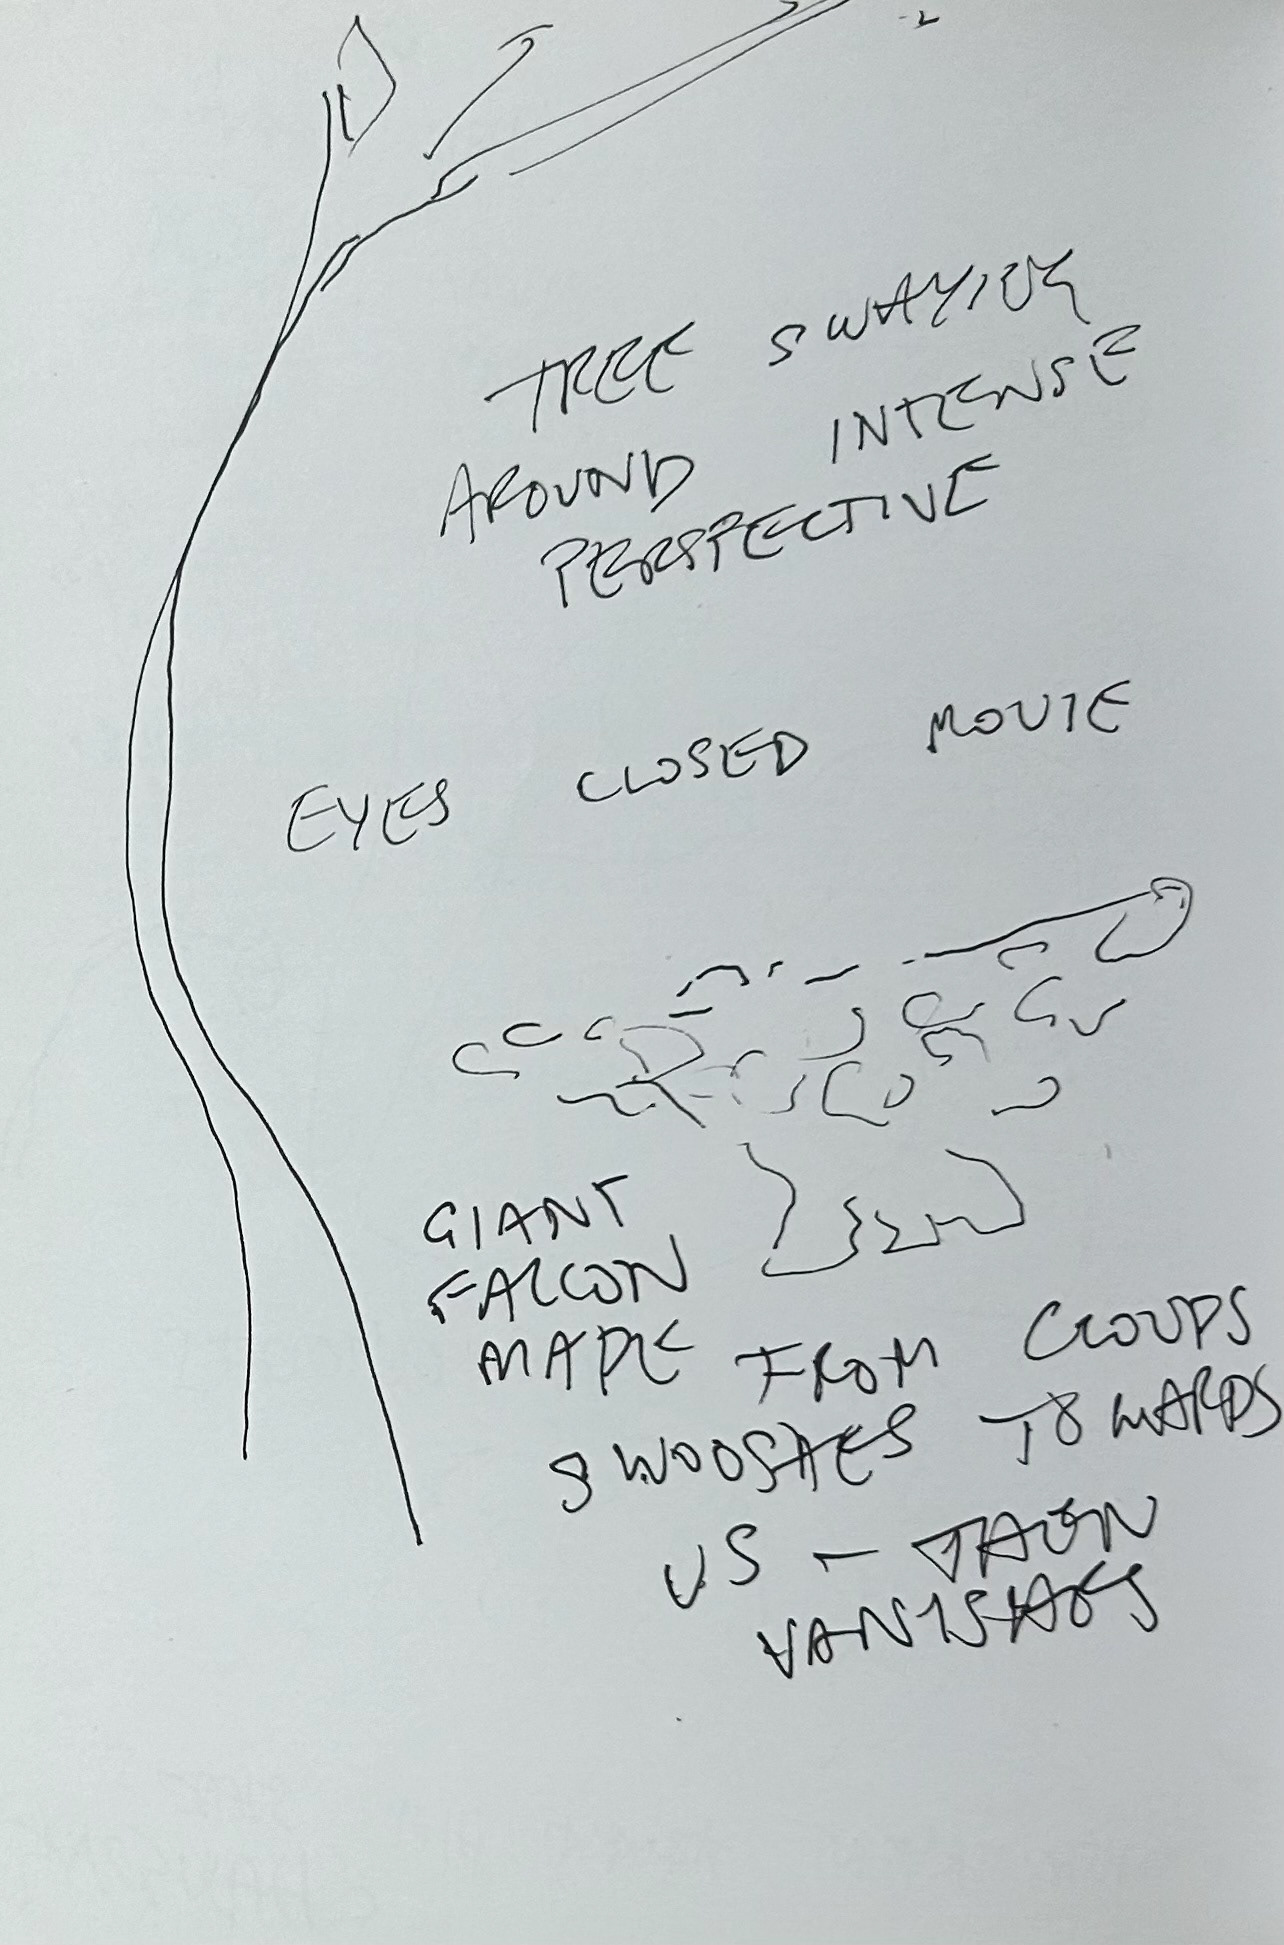 TREE SWAYING
AROUND INTENSE
PERSPECTIVE
EYES CLOSED MOVIE
GIANT
FALCON
MADE FROM CLOUDS
SWOOSHES TOWARDS
US – THEN
VANISHES